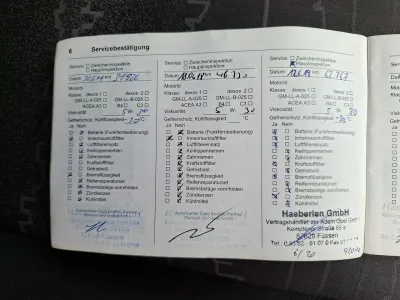 6 Servicebestätigung
Service: Zwischeninspektion
Hauptinspektion
Datum km
Motoröl
Klasse: dexos 1 dexos 2
GM-LL-A-025 GM-LL-B-025
ACEA A3 B4 C3
Viskosität 5 W 30
Gefrierschutz, Kühlflüssigkeit °C
Ja Nein
Batterie (Funkfernbedienung)
Innenraumluftfilter
Luftfiltereinsatz
Keilrippenriemen
Zahnriemen
Kraftstofffilter
Getriebeöl
Bremsflüssigkeit
Reifenreparaturset
Bremsbeläge vorn/hinten
Zündkerzen
Kühlmittel
Service: Zwischeninspektion
Hauptinspektion
Datum km 46773
Motoröl
Klasse: dexos 1 dexos 2
GM-LL-A-025 GM-LL-B-025
ACEA A3 B4 C3
Viskosität 5 W 30
Gefrierschutz, Kühlflüssigkeit °C
Ja Nein
Batterie (Funkfernbedienung)
Innenraumluftfilter
Luftfiltereinsatz
Keilrippenriemen
Zahnriemen
Kraftstofffilter
Getriebeöl
Bremsflüssigkeit
Reifenreparaturset
Bremsbeläge vorn/hinten
Zündkerzen
Kühlmittel
Service: Zwischeninspektion
Hauptinspektion
Datum km
Motoröl
Klasse: dexos 1 dexos 2
GM-LL-A-025 GM-LL-B-025
ACEA A3 B4 C3
Viskosität 5 W 30
Gefrierschutz, Kühlflüssigkeit °C
Ja Nein
Batterie (Funkfernbedienung)
Innenraumluftfilter
Luftfiltereinsatz
Keilrippenriemen
Zahnriemen
Kraftstofffilter
Getriebeöl
Bremsflüssigkeit
Reifenreparaturset
Bremsbeläge vorn/hinten
Zündkerzen
Kühlmittel
Haeberlen GmbH
Vertragshändler der Adam Opel
Kemptener Straße
87629 Füssen
6/20